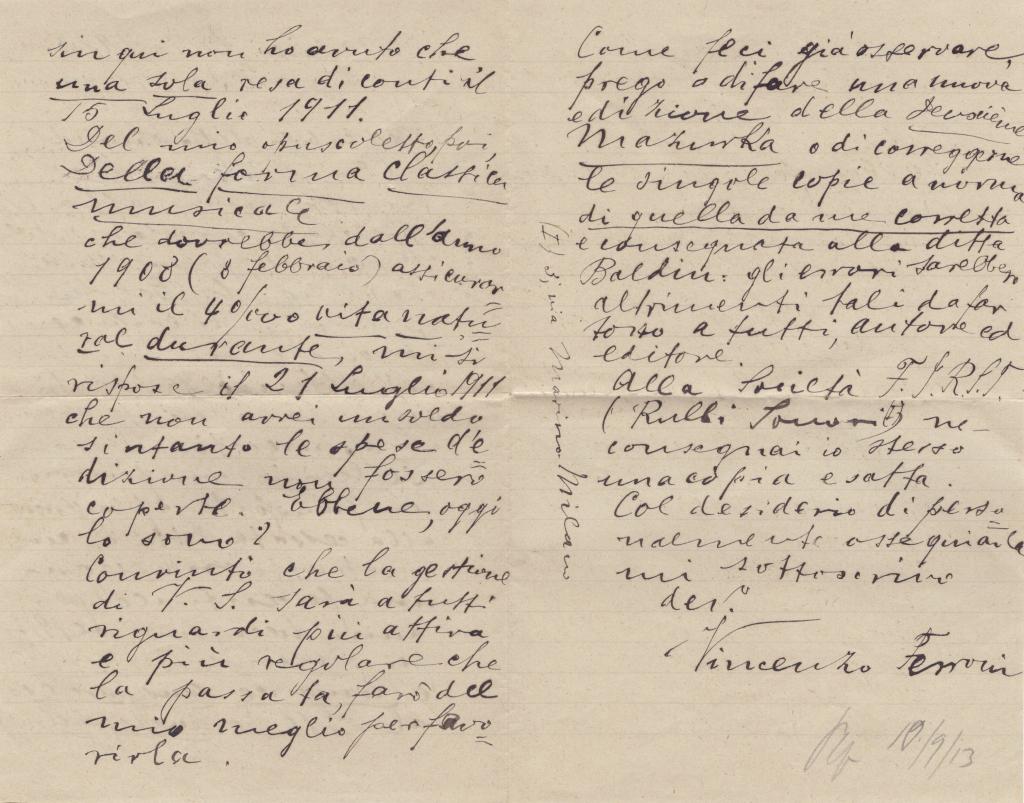 sin qui non ho avuto che
una sola resa di conti il
15 Luglio 1911.
Del mio opuscoletto, poi,
Della forma classica
musicale
che dovrebbe, dall'anno
1908 (8 febbraio) assicurar
mi il 40/000 vita natu=
ral durante, mi si
rispose il 21 Luglio 1911
che non avrei un soldo
sintanto le spese d'e=
dizione non fossero
coperte. Ebbene, oggi
lo sono?
Convinto che la gestione
di V. S. sarà a tutti
riguardi più attiva
e più regolare che
la passata, farò del
mio meglio per favo=
rirla.
Come feci già osservare,
prego o di fare una nuova
edizione della Deuxième
Mazurka o di correggerne
le singole copie a norma
di quella da me corretta
e consegnata alla ditta
Baldin: gli errori sarebbero
altrimenti tali da far
torto a tutti, autore ed
editore.
Alla Società F.I.R.S.T.
(Rulli Sonori) (I) ne
consegnai io stesso
una copia esatta.
Col desiderio di perso=
nalmente ossequiarla
mi sottoscrivo
dev.º
Vincenzo Ferroni
(I) 3, via Marino Milano
19/9/13